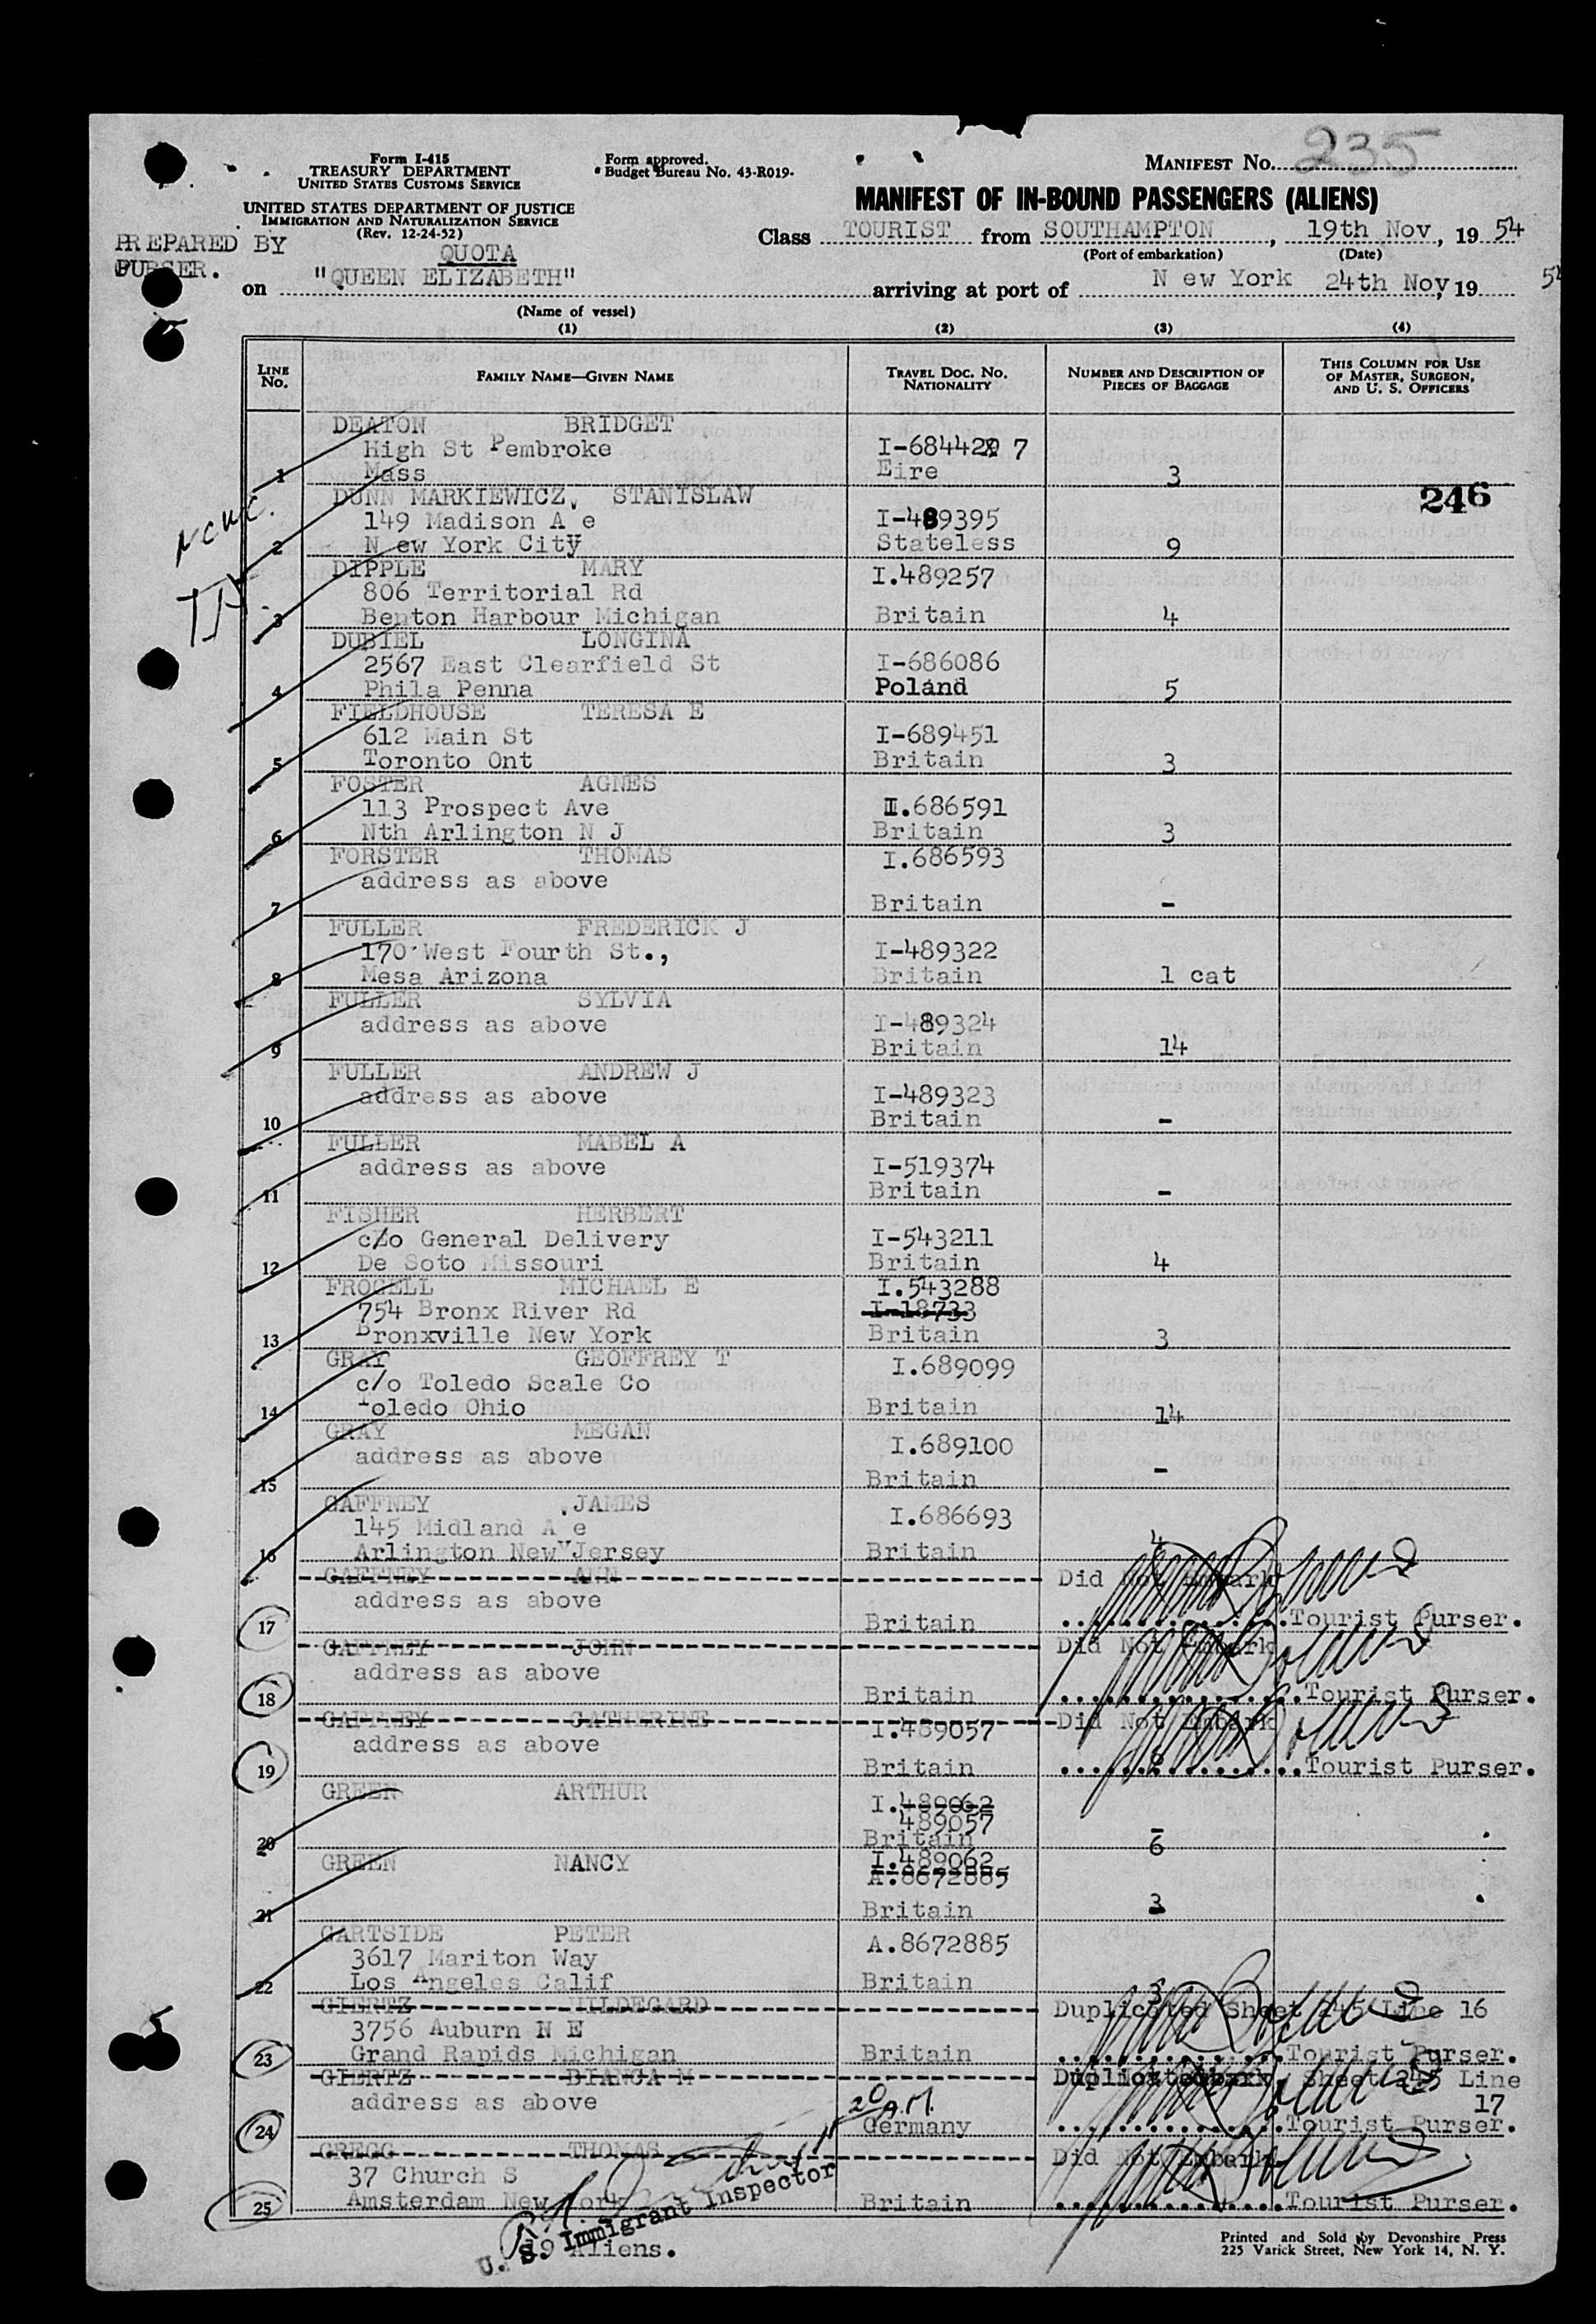 Form I-415
TREASURY DEPARTMENT
UNITED STATES CUSTOMS SERVICE
UNITED STATES DEPARTMENT OF JUSTICE
IMMIGRATION AND NATURALIZATION SERVICE
(Rev. 12-24-52)
Form approved.
Budget Bureau No. 43-R019.
MANIFEST No. 235
MANIFEST OF IN-BOUND PASSENGERS (ALIENS)
PREPARED BY
PURSER.
QUOTA
Class TOURIST from SOUTHAMPTON, 19th Nov, 19 54
(Port of embarkation) (Date)
on "QUEEN ELIZABETH" arriving at port of N ew York 24th Nov, 19 54
(Name of vessel)
(1) (2) (3) (4)
LINE No. FAMILY NAME—GIVEN NAME TRAVEL DOC. No. NATIONALITY NUMBER AND DESCRIPTION OF PIECES OF BAGGAGE THIS COLUMN FOR USE OF MASTER, SURGEON, AND U. S. OFFICERS
DEATON BRIDGET
High St Pembroke I-68442 7
1 Mass Eire 3
246
DUNN MARKIEWICZ, STANISLAW
149 Madison A e I-489395
2 N ew York City Stateless 9
DIPPLE MARY I.489257
806 Territorial Rd
3 Benton Harbour Michigan Britain 4
DUBIEL LONGINA
2567 East Clearfield St I-686086
4 Phila Penna Poland 5
FIELDHOUSE TERESA E
612 Main St I-689451
5 Toronto Ont Britain 3
FOSTER AGNES
113 Prospect Ave I.686591
6 Nth Arlington N J Britain 3
FORSTER THOMAS I.686593
address as above
7 Britain -
FULLER FREDERICK J
170 West Fourth St., I-489322
8 Mesa Arizona Britain 1 cat
FULLER SYLVIA
address as above I-489324
9 Britain 14
FULLER ANDREW J
address as above I-489323
10 Britain -
FULLER MABEL A
address as above I-519374
11 Britain -
FISHER HERBERT
c/o General Delivery I-543211
12 De Soto Missouri Britain 4
FROGELL MICHAEL E I.543288
754 Bronx River Rd I-18733
13 Bronxville New York Britain 3
GRAY GEOFFREY T I.689099
c/o Toledo Scale Co
14 Toledo Ohio Britain 14
GRAY MEGAN I.689100
address as above
15 Britain -
GAFFNEY JAMES I.686693
145 Midland A e
16 Arlington New Jersey Britain 4
GAFFNEY ANN Did Not Embark
address as above
17 Britain Tourist Purser.
GAFFNEY JOHN Did Not Embark
address as above
18 Britain Tourist Purser.
GAFFNEY CATHERINE Did Not Embark
address as above I.489057
19 Britain 6 Tourist Purser.
GREEN ARTHUR I.489062
489057
20 Britain 6
GREEN NANCY I.489062
A.8672885
21 Britain 3
GARTSIDE PETER A.8672885
3617 Mariton Way
22 Los Angeles Calif Britain 3
GIERTZ HILDEGARD Duplicated Sheet 245 Line 16
3756 Auburn N E
23 Grand Rapids Michigan Britain Tourist Purser.
GIERTZ BIANCA M Duplicated Sheet 245 Line
address as above 17
24 Germany Tourist Purser.
GREGG THOMAS Did Not Embark
37 Church S
25 Amsterdam New York Britain Tourist Purser.
U. S. Immigrant Inspector
19 Aliens.
Printed and Sold by Devonshire Press
225 Varick Street, New York 14, N. Y.